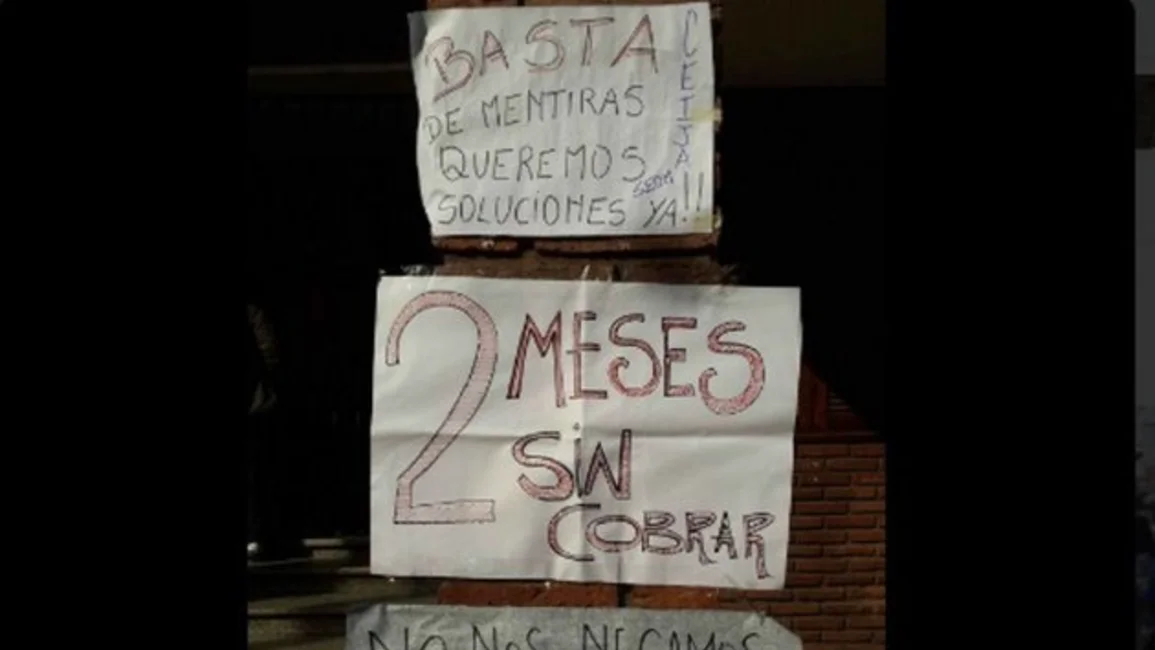 BASTA
DE MENTIRAS
QUEREMOS
SOLUCIONES YA!!
2 MESES
SiN
COBRAR
NO NOS NEGAMOS